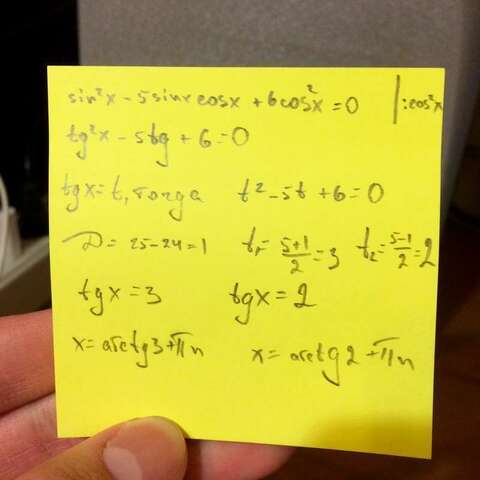 sin²x - 5sinxcosx + 6cos²x = 0 | :cos²x
tg²x - 5tg + 6 = 0
tgx = t, тогда t² - 5t + 6 = 0
D = 25 - 24 = 1 t₁ = (5+1)/2 = 3 t₂ = (5-1)/2 = 2
tgx = 3 tgx = 2
x = arctg3 + πn x = arctg2 + πn